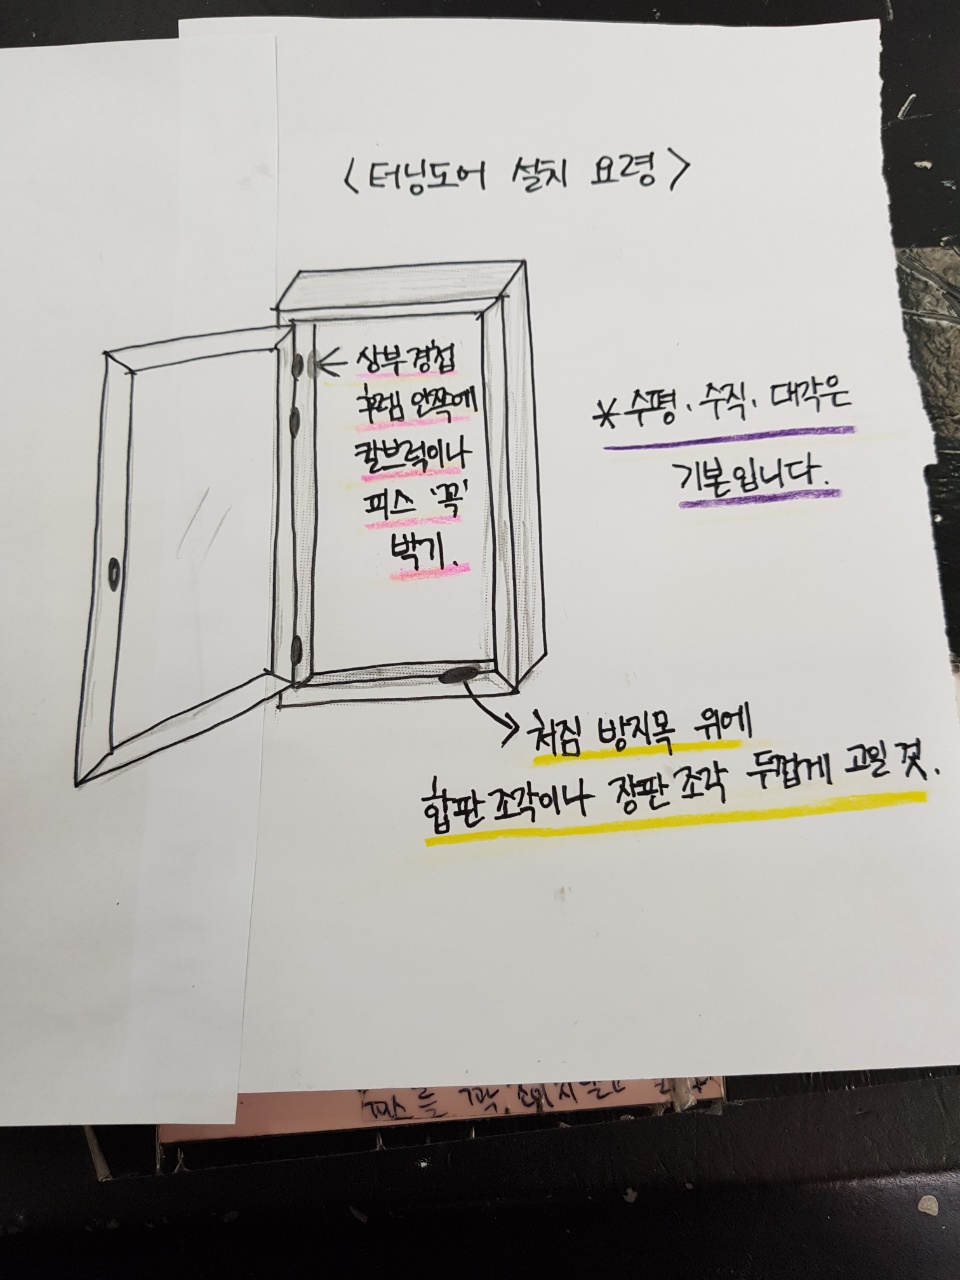 <터닝도어 설치 요령>
상부경첩
후렘 안쪽에
칼브럭이나
피스 '꼭'
박기.
*수평. 수직. 대각은
기본입니다.
처짐 방지목 위에
합판조각이나 장판조각 두껍게 고일 것.